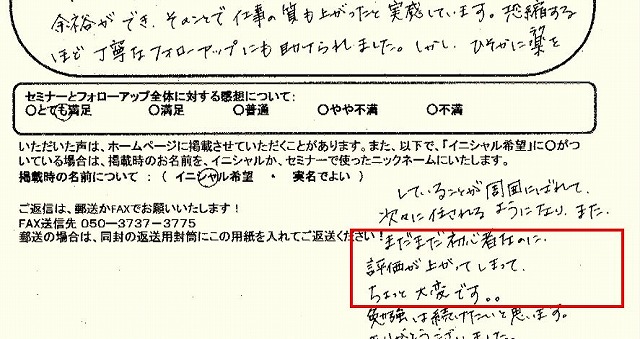 余裕ができ、そのことで仕事の質も上がったと実感しています。恐縮する
ほど丁寧なフォローアップにも助けられました。しかし、ひそかに楽を
セミナーとフォローアップ全体に対する感想について：
○とても満足 ○満足 ○普通 ○やや不満 ○不満
いただいた声は、ホームページに掲載させていただくことがあります。また、以下で、「イニシャル希望」に○がつ
いている場合は、掲載時のお名前を、イニシャルか、セミナーで使ったニックネームにいたします。
掲載時の名前について：（ イニシャル希望 ・ 実名でよい ）
ご返信は、郵送かFAXでお願いいたします！
FAX送信先 050－3737－3775
郵送の場合は、同封の返送用封筒にこの用紙を入れてご返送ください！
していることが周囲にばれて、
次々に任されるようになり、また、
まだまだ初心者なのに、
評価が上がってしまって、
ちょっと大変です。。
勉強は続けたいと思います。
ありがとうございました。